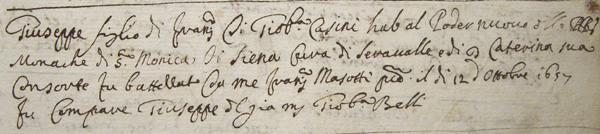 Giuseppe figlio di Franc.o di Gio:Batta Casini hab. al Poder nuovo
Monache di S.ta Monica di Siena Cura di Seravalle e di Caterina sua
Consorte fu battezzato da me Franc.o Masotti il di 12 d'Ottobre 1657
fu Compare Giuseppe del gia Gio:Batta Belli